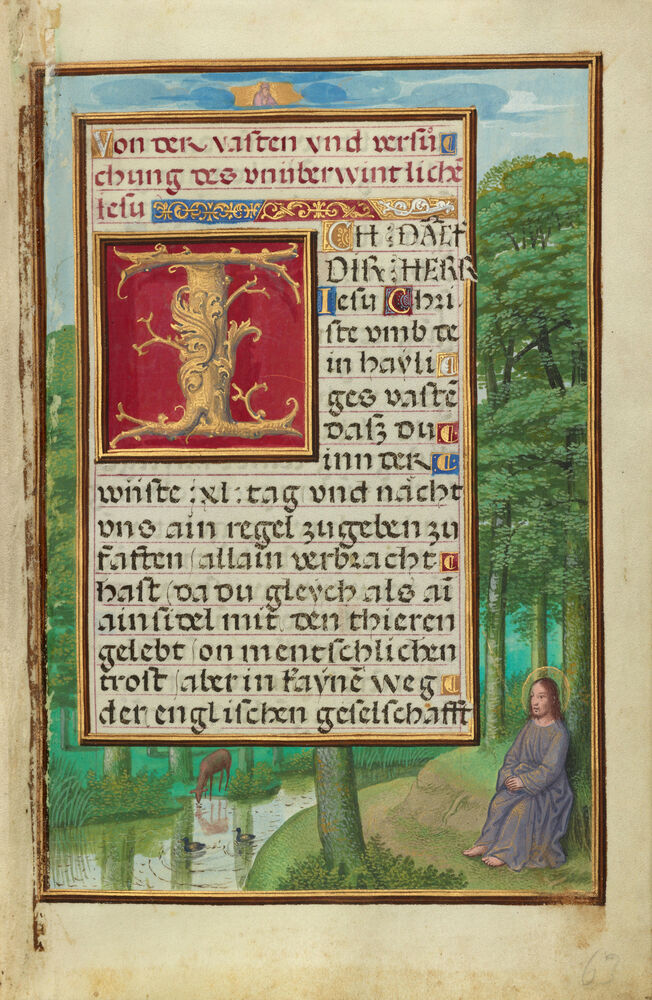 Von der vasten vnd versuͦ
chung des vnüberwintlichē
Iesu
ICH: DAŇCK
DIR: HERR
Iesu Chri
ste vmb de
in hayli
ges vastē
dasz du
inn der
wüste :xl: tag vnd nacht
vns ain regel zugeben zu
fasten / allain verbracht
hast / da du gleych als ai͞
ainsidel mit den thieren
gelebt / on mentschlichen
trost / aber in kaynē weg
der englischen geselschafft
63